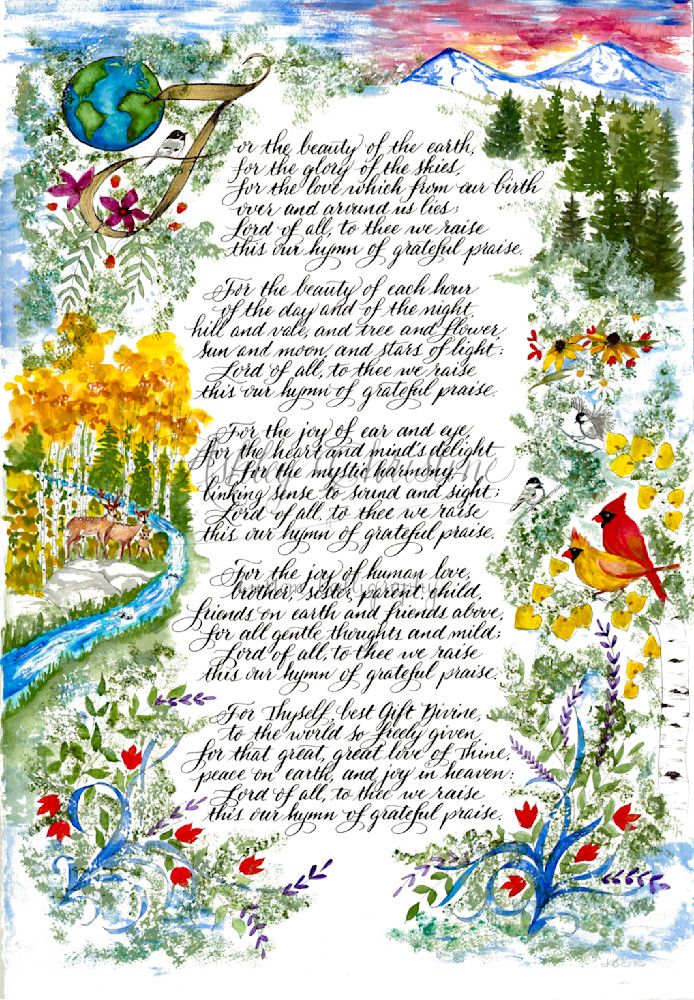 For the beauty of the earth,
for the glory of the skies,
for the love which from our birth
over and around us lies;
Lord of all, to thee we raise
this our hymn of grateful praise.
For the beauty of each hour
of the day and of the night,
hill and vale, and tree and flower,
sun and moon, and stars of light:
Lord of all, to thee we raise
this our hymn of grateful praise.
For the joy of ear and eye,
for the heart and mind's delight
for the mystic harmony,
linking sense to sound and sight;
Lord of all, to thee we raise
this our hymn of grateful praise.
For the joy of human love,
brother, sister, parent, child,
friends on earth and friends above,
for all gentle thoughts and mild;
Lord of all, to thee we raise
this our hymn of grateful praise.
For Thyself, best Gift Divine,
to the world so freely given,
for that great, great love of Thine,
peace on earth, and joy in heaven:
Lord of all, to thee we raise
this our hymn of grateful praise.